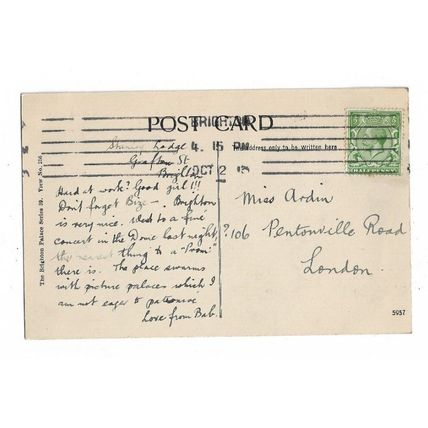 BRIGHTON
POST CARD
4. 15 PM
address only to be written here.
OCT 2
HALFPENNY
Lodge
Grafton St.
Brighton
Hard at work? Good girl!!!
Don't forget Bize -. Brighton
is very nice. Went to a fine
concert in the Dome last night,
the nearest thing to a "Prom"
there is. The place swarms
with picture palaces which I
am not eager to patronise
Love from Bab.
Miss Ardin
?106 Pentonville Road
London.
The Brighton Palace Series 39. View No. 256.
5957